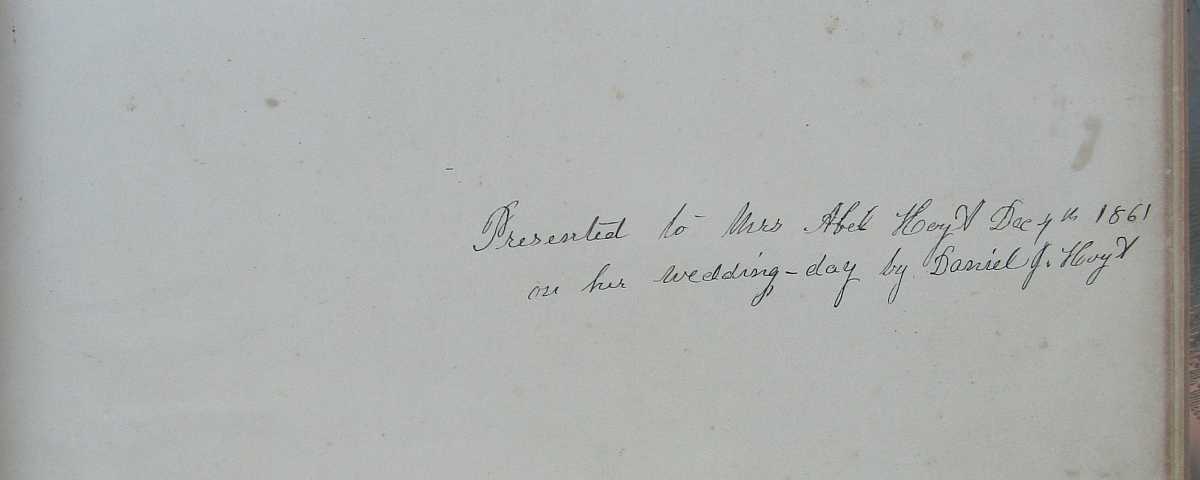 Presented to Mrs Abel Hoyt Dec 4th 1861
on her wedding-day by Daniel J. Hoyt